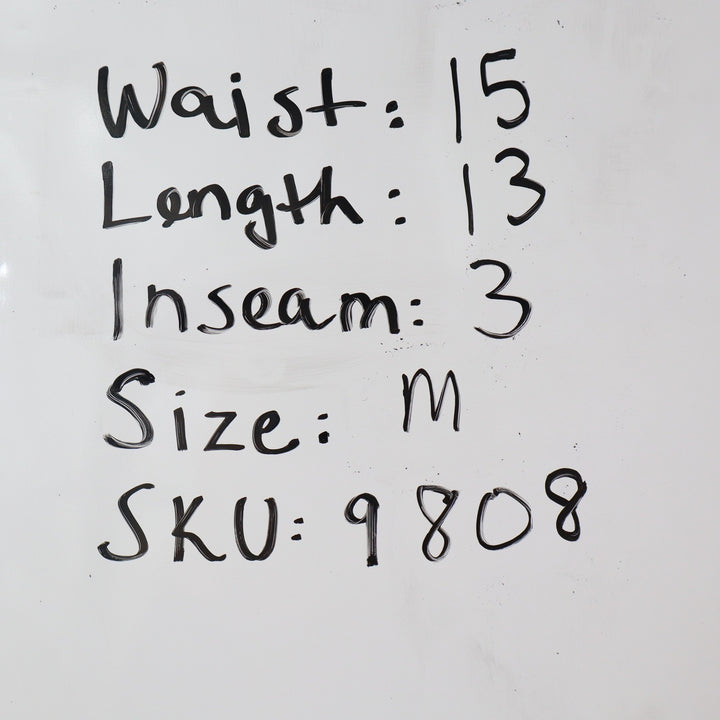 Waist: 15
Length: 13
Inseam: 3
Size: M
SKU: 9808